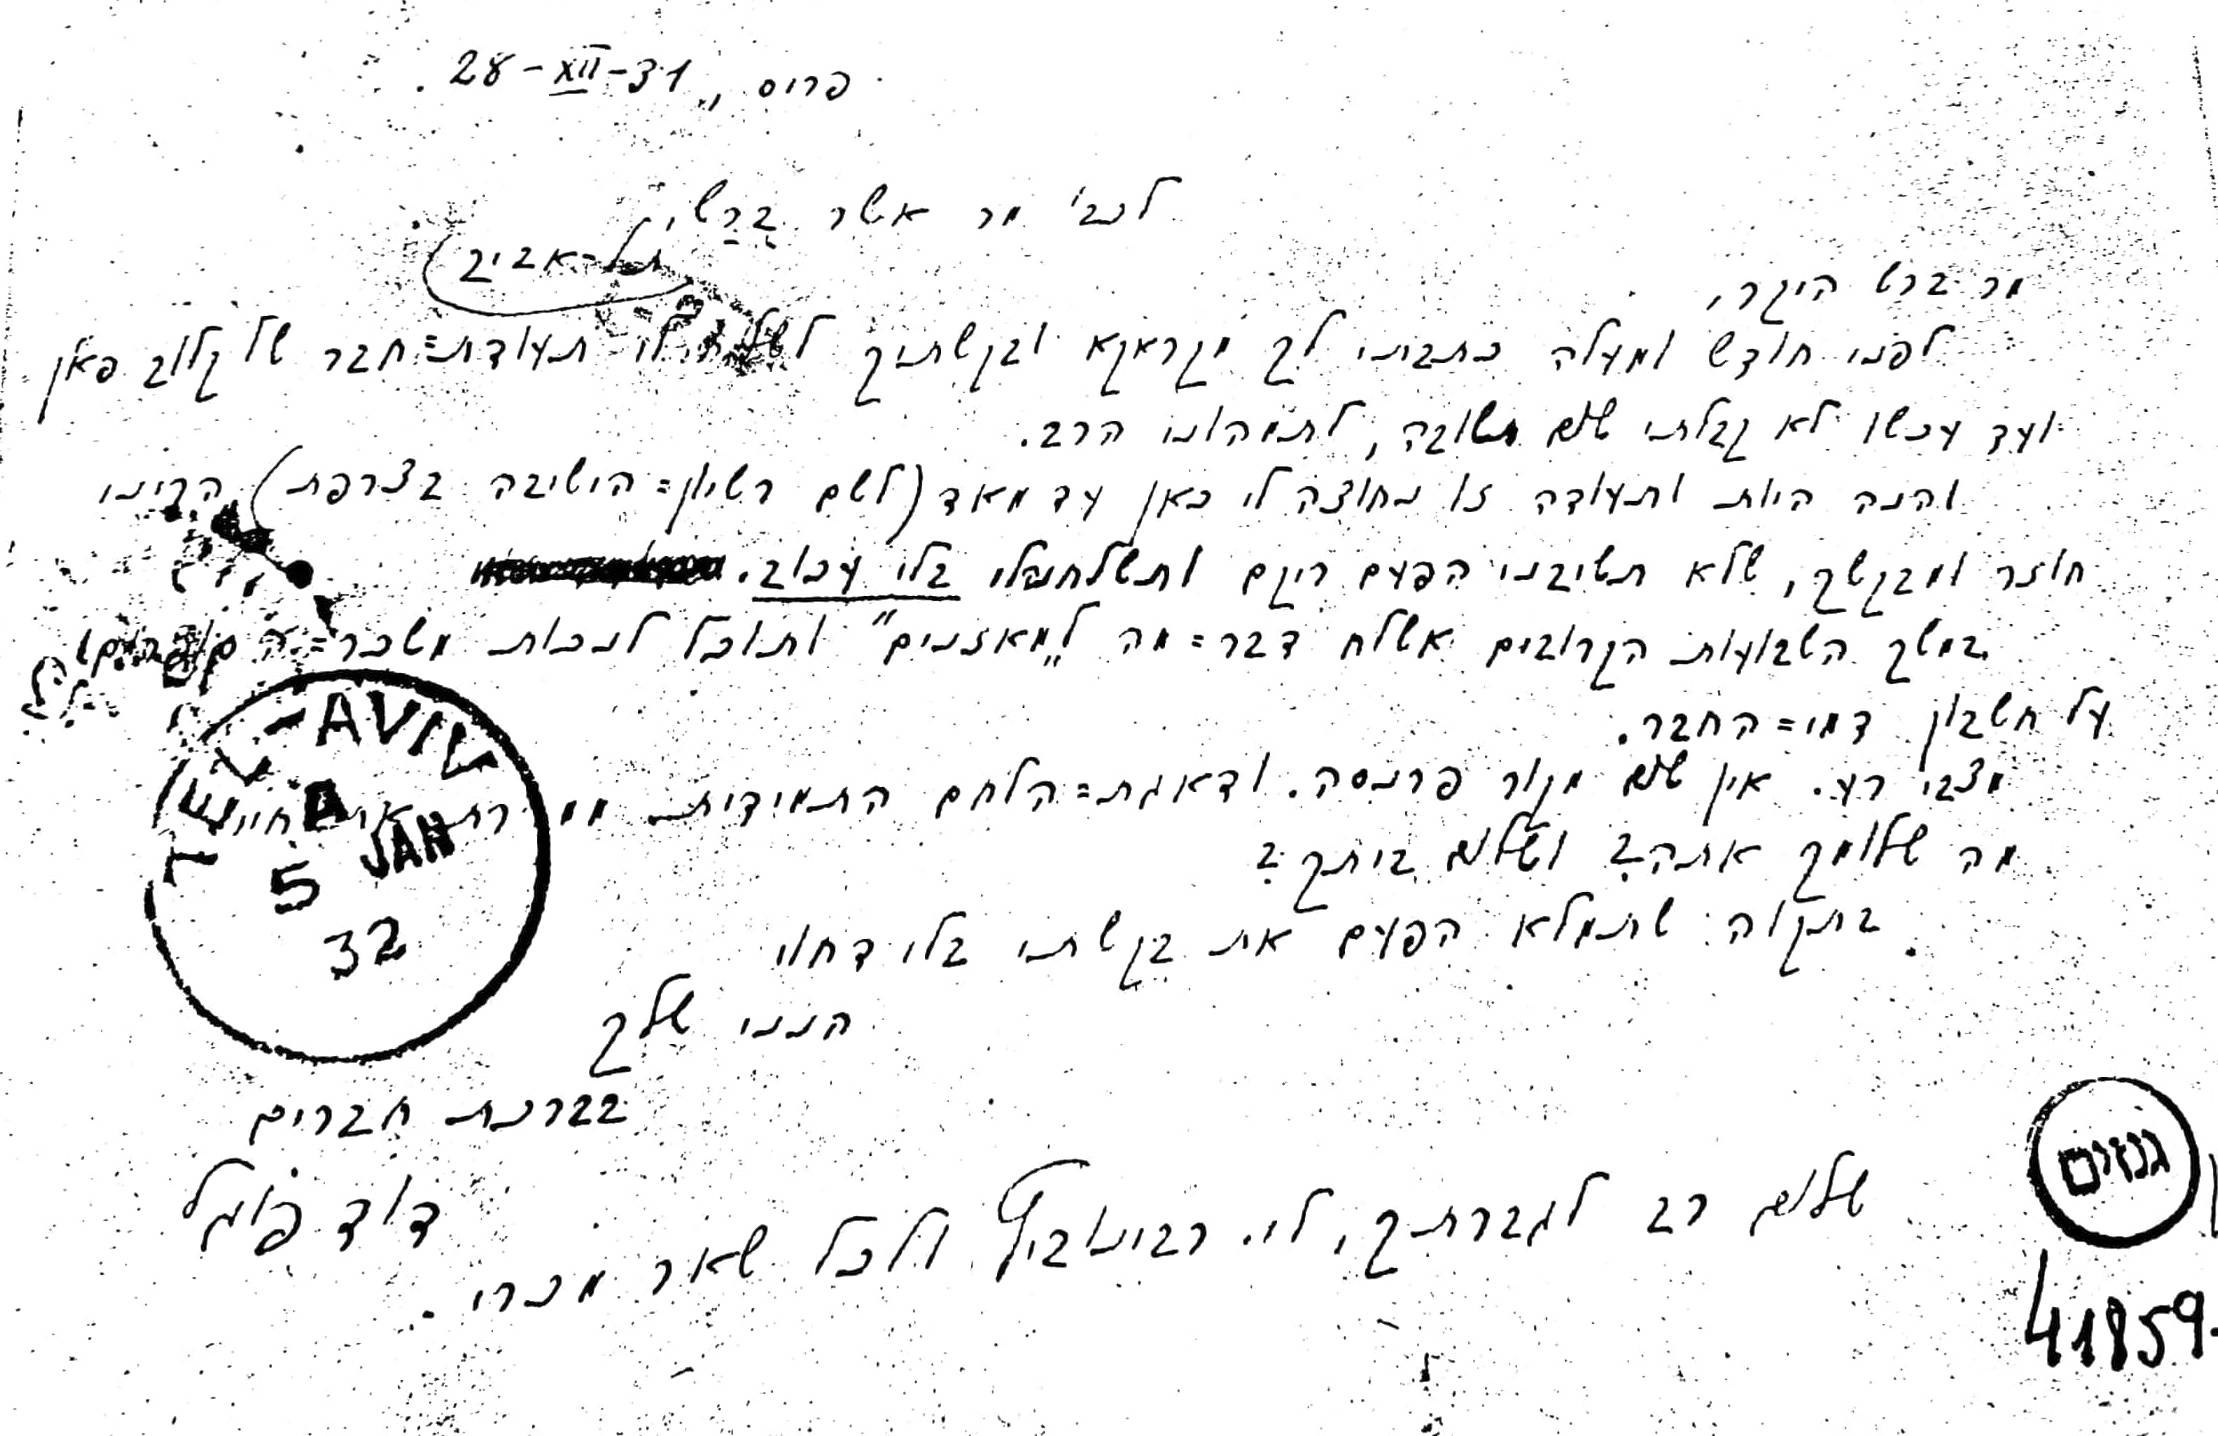 פריס, 28-XII-31
לכב' מר אשר ברש,
תל-אביב
מר ברש היקר,
לפני חודש ומעלה כתבתי לך מקראקא ובקשתיך לשלוח לי תעודת=חבר של קלוב פאן
ועד עכשו לא קבלתי שום תשובה, לתמהוני הרב.
והנה היות ותעודה זו נחוצה לי כאן עד מאד (לשם רשיון=הישיבה בצרפת) הריני
חוזר ומבקשך, שלא תשיבני הפעם ריקם ותשלחנה לי בלי עכוב.
במשך השבועות הקרובים אשלח דבר=מה ל„מאזנים" ותוכל לנכות משכר=
על חשבון דמי=החבר.
מצבי רע. אין שום מקור פרנסה. ודאגת=הלחם התמידית ממררת את חיי
מה שלומך אתה? ושלום ביתך?
בתקוה שתמלא הפעם את בקשתי בלי דחוי
הנני שלך
בברכת חברים
דוד פוגל
שלום רב לגברתך, לי. רבינוביץ ולכל שאר מכרי.
TEL-AVIV
5 JAN
32
גנזים
41859